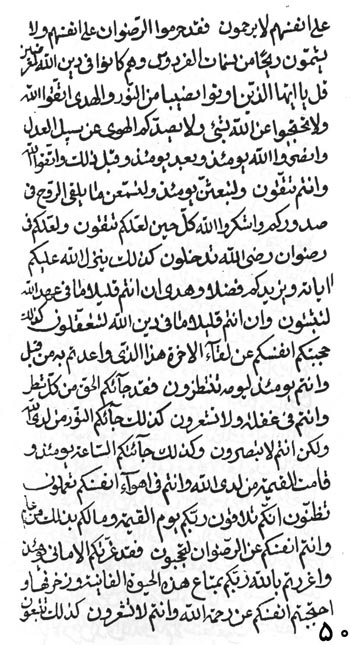 على انفسهم لا يرحمون فقد حرموا الرضوان على انفسهم ولا
يشمون ريحًا من نسمات الفردوس وهم كانوا في دين الله لمعرضين
قل يا ايها الذين اوتوا نصيبا من النور والهدى اتقوا الله
ولا تحتجبوا عن الله بشئ ولا يصدكم الهوى عن سبيل العدل
والله يومئذ وبعد يومئذ وقبل ذلك واتقوا الله
وانتم تتقون ولتبعثن يومئذ ولتسمعن ما يلقي الروح في
صدوركم واشكروا الله كل حين لعلكم تتقون ولعلكم في
رضوان رضى الله تدخلون كذلك ينزل الله عليكم
اياته ويزيدكم فضلا وهدى ان انتم قليلا ما في عهد الله
لتثبتون وان انتم قليلا ما في دين الله لتعقلون كذلك
حجبتكم انفسكم عن لقاء الاخرة هذا الذي واعدتم به من قبل
وانتم يومئذ ليومه تنتظرون فقد جائكم الحق من كل شطر
وانتم في غفلة ولا تشعرون كذلك جائكم النور من لدى الله
ولكن انتم لا تبصرون وكذلك جائتكم الساعة يومئذ و
قامت القيمة من لدى الله وانتم في اهواء انفسكم تعملون
تظنون انكم تلاقون ربكم يوم القيمة وما لكم بذلك من علم
وانتم انفسكم عن الرضوان لتحجبون فقد غرتكم الاماني يومئذ
واغررتم بالله ربكم بمتاع هذه الحيوة الفانية وزخرفها و
احتجبتم انفسكم عن رحمة الله وانتم لا تشعرون كذلك تتبعون
۵۰